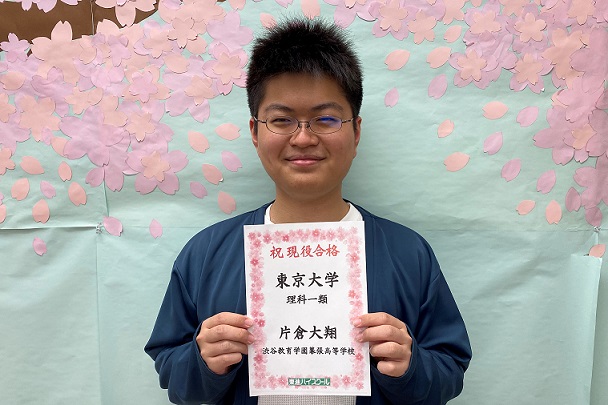 祝 現役合格
東京大学
理科一類
片倉大翔
渋谷教育学園幕張高等学校
東進ハイスクール